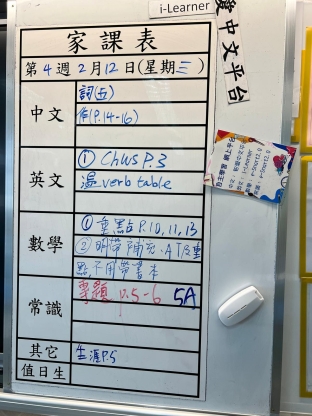 i-Learner
後中文平台
家課表
第4週2月12日(星期三)
中文
詞(五)
作(P.14-16)
英文
① Chws P.3
溫 verb table
數學
① 重點P.10,11,13
② 明帶補充、AT及重
點不用帶書本
常識
專題 p.5-6 5A
其它
生涯P.5
值日生
自主學習 網上平台